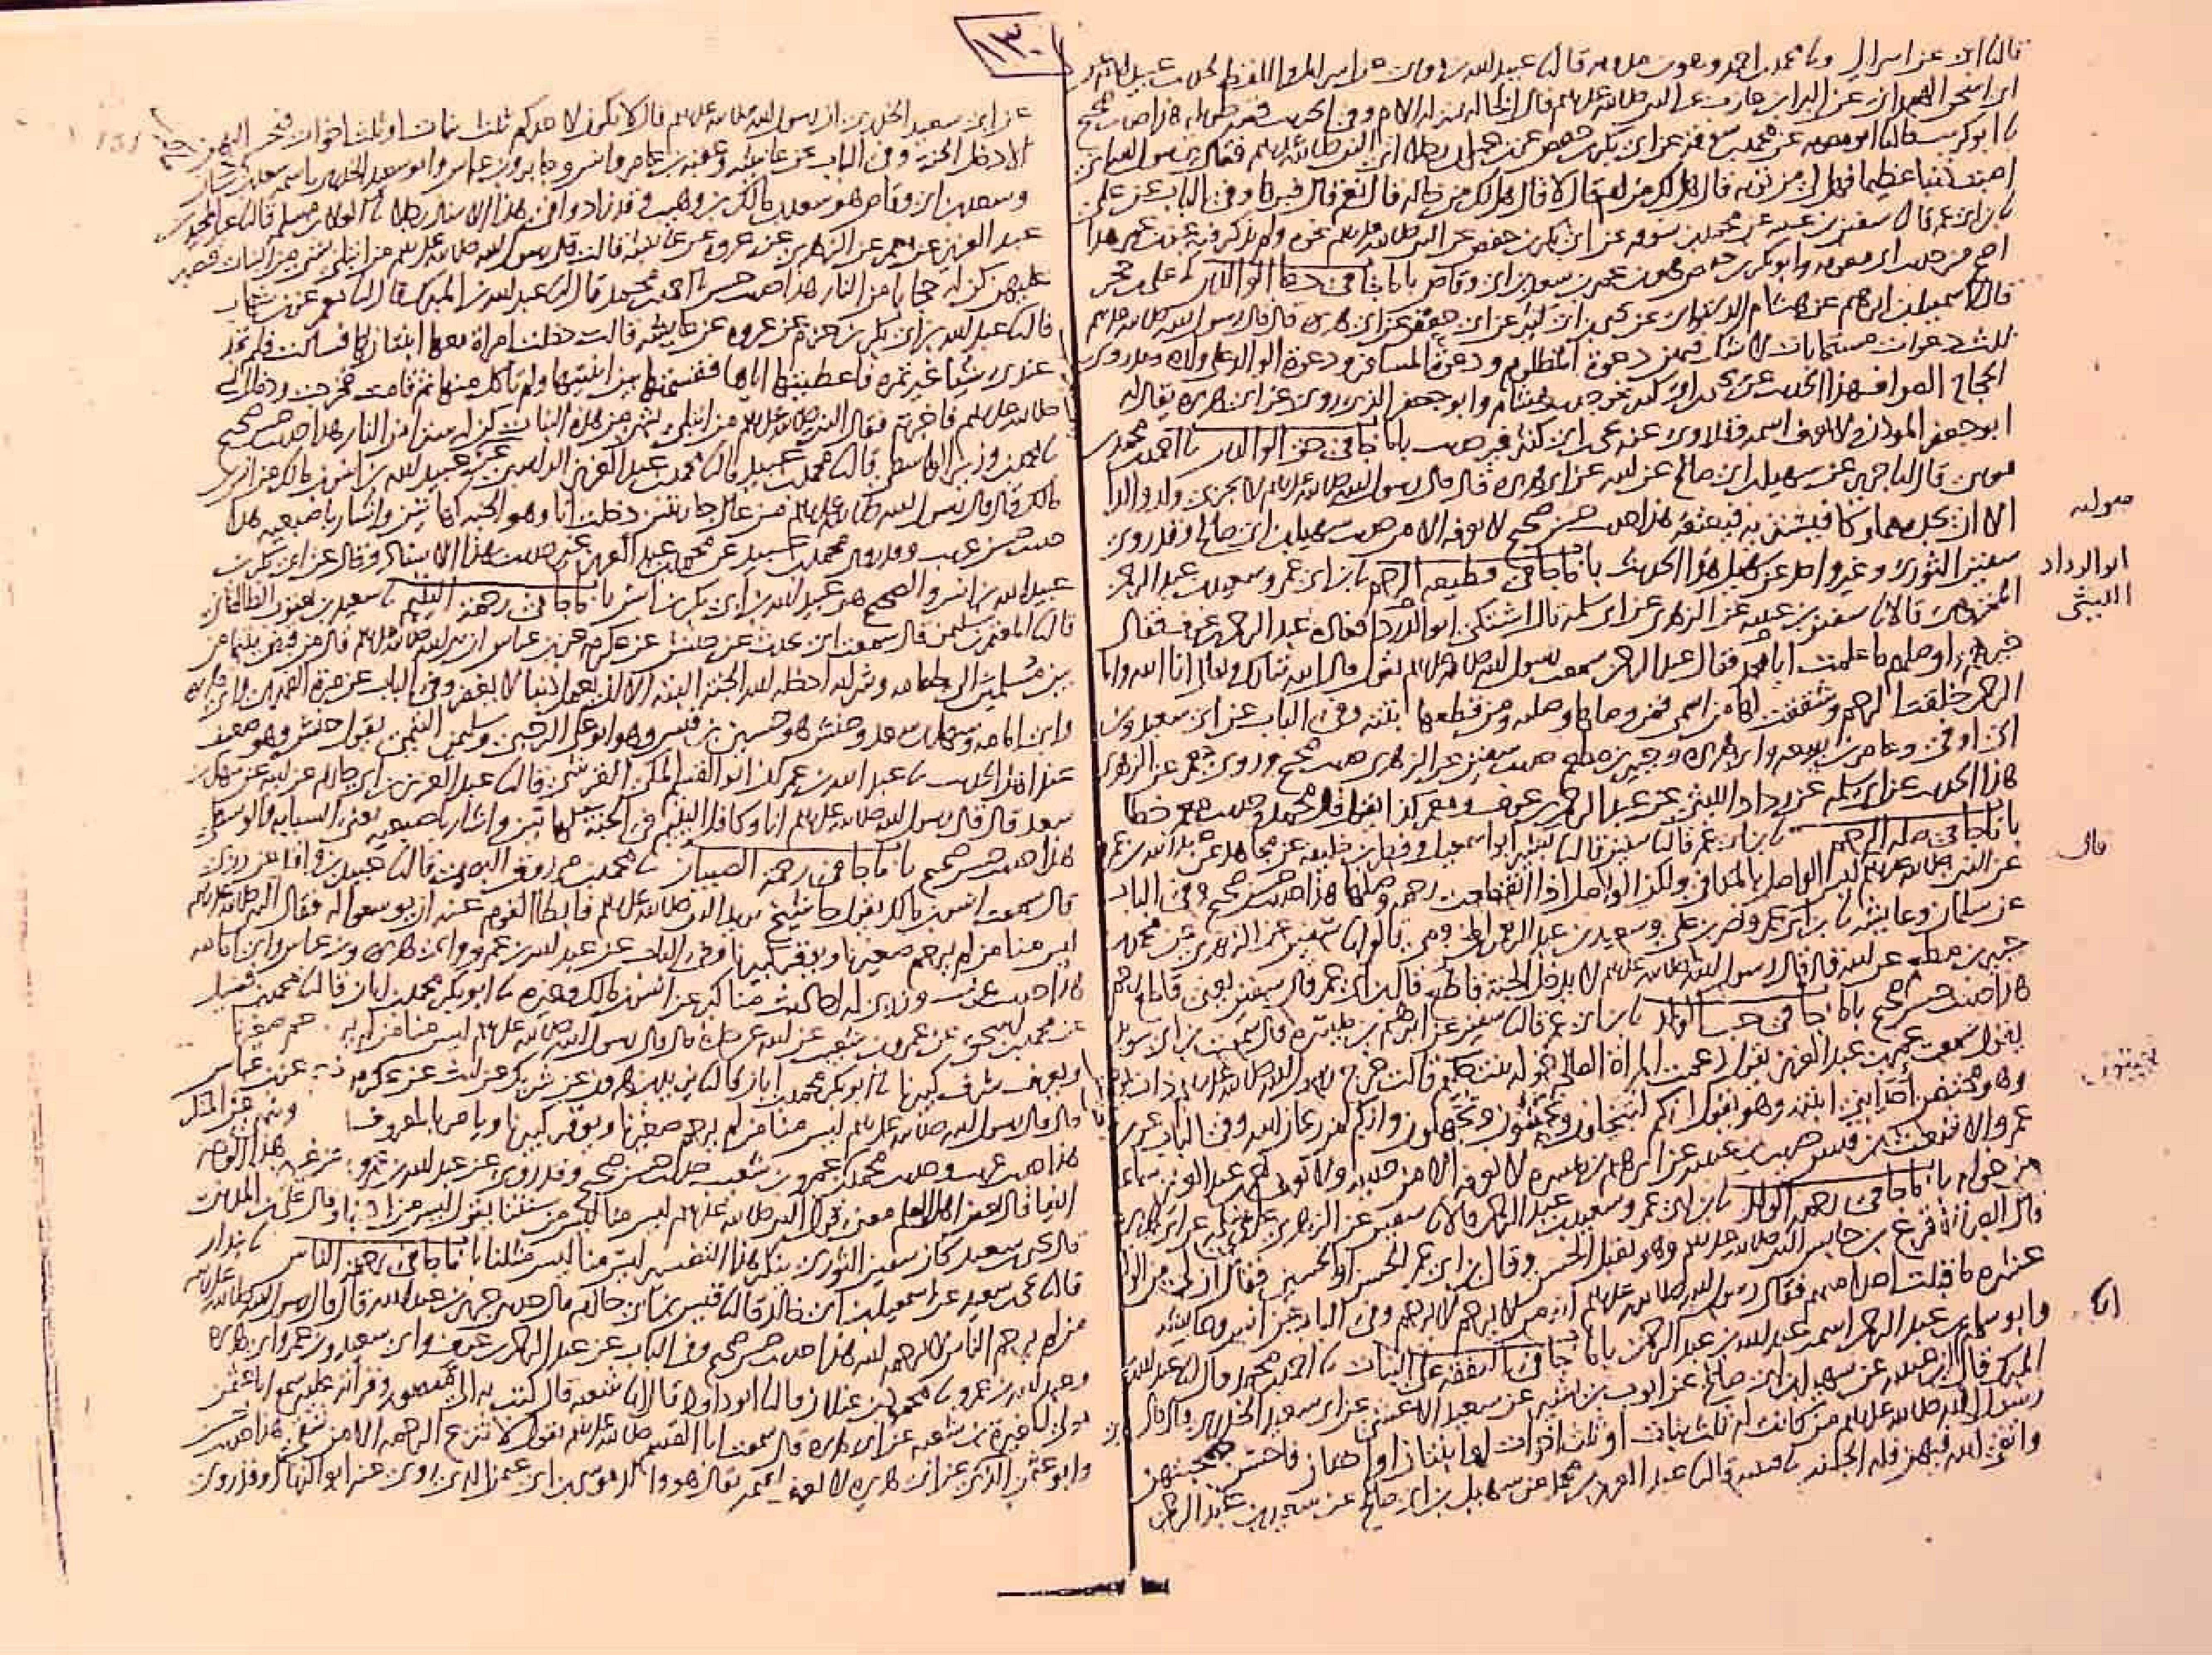 ١٣٠
قال نا ابى عن اسرائيل و نا محمد بن احمد وهو ابن مدويه قال نا عبيد الله بن موسى عن اسرائيل واللفظ لحديث عبيد الله عن
ابى اسحق الهمدانى عن البراء بن عازب عن النبى صلى الله عليه وسلم قال الخالة بمنزلة الام وفى الحديث قصة طويلة هذا حديث صحيح
نا ابو كريب قال نا ابو معوية عن محمد بن سوقة عن ابى بكر بن حفص عن ابن عمر ان رجلا اتى النبى صلى الله عليه وسلم فقال يرسول الله انى
اصبت ذنبا عظيما فهل لى من توبة قال هل لك من ام قال لا قال هل لك من خالة قال نعم قال فبرها وفى الباب عن على
نا ابن ابى عمر قال نا سفين بن عيينة عن محمد بن سوقة عن ابى بكر بن حفص عن النبى صلى الله عليه وسلم نحوه ولم يذكر فيه عن ابن عمر وهذا
اصح من حديث ابى معوية وابو بكر بن حفص هو ابن عمر بن سعد بن ابى وقاص باب ما جا فى دعا الوالدين نا على بن حجر
قال نا اسمعيل بن ابرهيم عن هشام الدستوائى عن يحيى بن ابى كثير عن ابى جعفر عن ابى هريرة قال قال رسول الله صلى الله عليه وسلم
ثلث دعوات مستجابات لا شك فيهن دعوة المظلوم ودعوة المسافر ودعوة الوالد على ولده وقد روى
الحجاج الصواف هذا الحديث عن يحيى بن ابى كثير نحو حديث هشام وابو جعفر الذى روى عن ابى هريرة يقال له
ابو جعفر المؤذن ولا نعرف اسمه وقد روى عنه يحيى بن ابى كثير غير حديث باب ما جا فى حق الوالدين نا احمد بن محمد بن
موسى قال نا جرير عن سهيل بن ابى صالح عن ابيه عن ابى هريرة قال قال رسول الله صلى الله عليه وسلم لا يجزى ولد والدا
الا ان يجده مملوكا فيشتريه فيعتقه هذا حديث حسن صحيح لا نعرفه الا من حديث سهيل بن ابى صالح وقد روى
سفين الثورى وغير واحد عن سهيل هذا الحديث باب ما جا فى قطيعة الرحم نا ابن ابى عمر وسعيد بن عبد الرحمن
المخزومى قالا نا سفين بن عيينة عن الزهرى عن ابى سلمة قال اشتكى ابو الدرداء فعاده عبد الرحمن بن عوف فقال
خيرهم واوصلهم ما علمت ابا محمد فقال عبد الرحمن سمعت رسول الله صلى الله عليه وسلم يقول قال الله تبارك وتعالى انا الله وانا
الرحمن خلقت الرحم وشققت لها من اسمى فمن وصلها وصلته ومن قطعها بتته وفى الباب عن ابى سعيد وابن
ابى اوفى وعامر بن ربيعة وابى هريرة وجبير بن مطعم حديث سفين عن الزهرى حديث صحيح وروى معمر عن الزهرى
هذا الحديث عن ابى سلمة عن رداد الليثى عن عبد الرحمن بن عوف ومعمر كذا يقول قال محمد وحديث معمر خطا
باب ما جا فى صلة الرحم نا ابن ابى عمر قال نا سفين قال نا بشير ابو اسمعيل وفطر بن خليفة عن مجاهد عن عبد الله بن عمرو
عن النبى صلى الله عليه وسلم قال ليس الواصل بالمكافى ولكن الواصل الذى اذا انقطعت رحمه وصلها هذا حديث حسن صحيح وفى الباب
عن سلمان وعايشة نا ابن ابى عمر ونصر بن على وسعيد بن عبد الرحمن المخزومى قالوا نا سفين عن الزهرى عن محمد بن
جبير بن مطعم عن ابيه قال قال رسول الله صلى الله عليه وسلم لا يدخل الجنة قاطع قال ابن ابى عمر قال سفين يعنى قاطع رحم
هذا حديث حسن صحيح باب ما جا فى حب الولد نا ابن ابى عمر قال نا سفين عن ابرهيم بن ميسرة قال سمعت ابن ابى سويد
يقول سمعت عمر بن عبد العزيز يقول زعمت المراة الصالحة خولة بنت حكيم قالت خرج رسول الله صلى الله عليه وسلم ذات يوم
وهو محتضن احد ابنى ابنته وهو يقول انكم لتبخلون وتجبنون وتجهلون وانكم لمن ريحان الله وفى الباب عن ابن
عمر والاشعث بن قيس حديث ابن عيينة عن ابرهيم بن ميسرة لا نعرفه الا من حديثه ولا نعرف لعمر بن عبد العزيز سماعا
من خولة باب ما جا فى رحمة الولد نا ابن ابى عمر وسعيد بن عبد الرحمن قالا نا سفين عن الزهرى عن ابى سلمة عن ابى هريرة
قال ابصر الاقرع بن حابس النبى صلى الله عليه وسلم وهو يقبل الحسن وقال ابن ابى عمر الحسن او الحسين فقال ان لى من الولد
عشرة ما قبلت احدا منهم فقال رسول الله صلى الله عليه وسلم انه من لا يرحم لا يرحم وفى الباب عن انس وعايشة
وابو سلمة بن عبد الرحمن اسمه عبد الله بن عبد الرحمن باب ما جا فى النفقة على البنات نا احمد بن محمد قال نا عبد الله بن
المبرك قال نا ابن عيينة عن سهيل بن ابى صالح عن ايوب بن بشير عن سعيد الاعشى عن ابى سعيد الخدرى قال قال
رسول الله صلى الله عليه وسلم من كانت له ثلث بنات او ثلث اخوات او ابنتان او اختان فاحسن صحبتهن
واتقى الله فيهن فله الجنة نا قتيبة قال نا عبد العزيز بن محمد عن سهيل بن ابى صالح عن سعيد بن عبد الرحمن
ابو الرداد
الليثى
قال
عن ابى سعيد الخدرى ان رسول الله صلى الله عليه وسلم قال لا يكون لاحدكم ثلث بنات او ثلث اخوات فيحسن اليهن
الا دخل الجنة وفى الباب عن عايشة وعقبة بن عامر وانس وجابر وابن عباس وابو سعيد الخدرى اسمه سعد بن مالك بن سنان
وسعد بن ابى وقاص هو سعد بن مالك بن وهيب وقد زادوا فى هذا الاسناد رجلا نا العلاء بن مسلمة قال نا عبد المجيد بن
عبد العزيز عن معمر عن الزهرى عن عروة عن عايشة قالت قال رسول الله صلى الله عليه وسلم من ابتلى بشى من البنات فصبر
عليهن كن له حجابا من النار هذا حديث حسن نا احمد بن محمد قال نا عبد الله بن المبرك قال نا معمر عن ابن شهاب
قال نا عبد الله بن ابى بكر بن حزم عن عروة عن عايشة قالت دخلت امراة معها ابنتان لها فسالت فلم تجد
عندى شيئا غير تمرة فاعطيتها اياها فقسمتها بين ابنتيها ولم تاكل منها ثم قامت فخرجت ودخل النبى
صلى الله عليه وسلم فاخبرته فقال النبى صلى الله عليه وسلم من ابتلى بشى من هذه البنات كن له سترا من النار هذا حديث حسن صحيح
نا محمد بن وزير الواسطى قال نا محمد بن عبيد قال نا محمد بن عبد العزيز الراسبى عن ابى بكر بن عبيد الله بن انس بن مالك عن انس بن
مالك قال قال رسول الله صلى الله عليه وسلم من عال جاريتين دخلت انا وهو الجنة كهاتين واشار باصبعيه هذا
حديث حسن غريب وقد روى محمد بن عبيد عن محمد بن عبد العزيز غير حديث بهذا الاسناد وقال عن ابى بكر بن
عبيد الله بن انس والصحيح هو عبيد الله بن ابى بكر بن انس باب ما جا فى رحمة اليتيم نا سعيد بن يعقوب الطالقانى
قال نا المعتمر بن سليمن قال سمعت ابى يحدث عن حنش عن عكرمة عن ابن عباس ان نبى الله صلى الله عليه وسلم قال من قبض يتيما من
بين مسلمين الى طعامه وشرابه ادخله الله الجنة البتة الا ان يعمل ذنبا لا يغفر وفى الباب عن مرة الفهرى وابى هريرة
وابى امامة وسهل بن سعد وحنش هو حسين بن قيس وهو ابو على الرحبى وسليمن التيمى يقول حنش وهو ضعيف
عند اهل الحديث نا عبد الله بن عمران ابو القسم المكى القرشى قال نا عبد العزيز بن ابى حازم عن ابيه عن سهل بن
سعد قال قال رسول الله صلى الله عليه وسلم انا وكافل اليتيم فى الجنة كهاتين واشار باصبعيه يعنى السبابة والوسطى
هذا حديث حسن صحيح باب ما جا فى رحمة الصبيان نا محمد بن مرزوق البصرى قال نا عبيد بن واقد عن زربى
قال سمعت انس بن مالك يقول جا شيخ يريد النبى صلى الله عليه وسلم فابطا القوم عنه ان يوسعوا له فقال النبى صلى الله عليه وسلم
ليس منا من لم يرحم صغيرنا ويوقر كبيرنا وفى الباب عن عبد الله بن عمرو وابى هريرة وابن عباس وابى امامة
هذا حديث غريب وزربى له احاديث مناكير عن انس بن مالك وغيره نا ابو بكر محمد بن ابان قال نا محمد بن فضيل
عن محمد بن اسحق عن عمرو بن شعيب عن ابيه عن جده قال قال رسول الله صلى الله عليه وسلم ليس منا من لم يرحم صغيرنا
ويعرف شرف كبيرنا نا ابو بكر محمد بن ابان قال نا يزيد بن هرون عن شريك عن ليث عن عكرمة عن ابن عباس
قال قال رسول الله صلى الله عليه وسلم ليس منا من لم يرحم صغيرنا ويوقر كبيرنا ويامر بالمعروف وينه عن المنكر
هذا حديث غريب وحديث محمد بن اسحق عن عمرو بن شعيب حديث حسن صحيح وقد روى عن عبد الله بن عمرو من غير هذا الوجه
ايضا قال بعض اهل العلم معنى قول النبى صلى الله عليه وسلم ليس منا ليس من سنتنا يقول ليس من ادبنا وقال على بن المدينى
قال يحيى بن سعيد كان سفين الثورى ينكر هذا التفسير ليس منا ليس مثلنا باب ما جا فى رحمة الناس نا بندار
قال نا يحيى بن سعيد عن اسمعيل بن ابى خالد قال نا قيس بن ابى حازم قال حدثنى جرير بن عبد الله قال قال رسول الله صلى الله عليه وسلم
من لم يرحم الناس لا يرحمه الله هذا حديث حسن صحيح وفى الباب عن عبد الرحمن بن عوف وابى سعيد وابن عمر وابى هريرة
وعبد الله بن عمرو نا محمود بن غيلان قال نا ابو داود قال نا شعبة قال كتب به الى منصور وقراته عليه سمع ابا عثمن
مولى المغيرة بن شعبة عن ابى هريرة قال سمعت ابا القسم صلى الله عليه وسلم يقول لا تنزع الرحمة الا من شقى هذا حديث حسن
وابو عثمن الذى روى عن ابى هريرة لا نعرف اسمه يقال هو والد موسى بن ابى عثمن الذى روى عنه ابو الزناد وقد روى